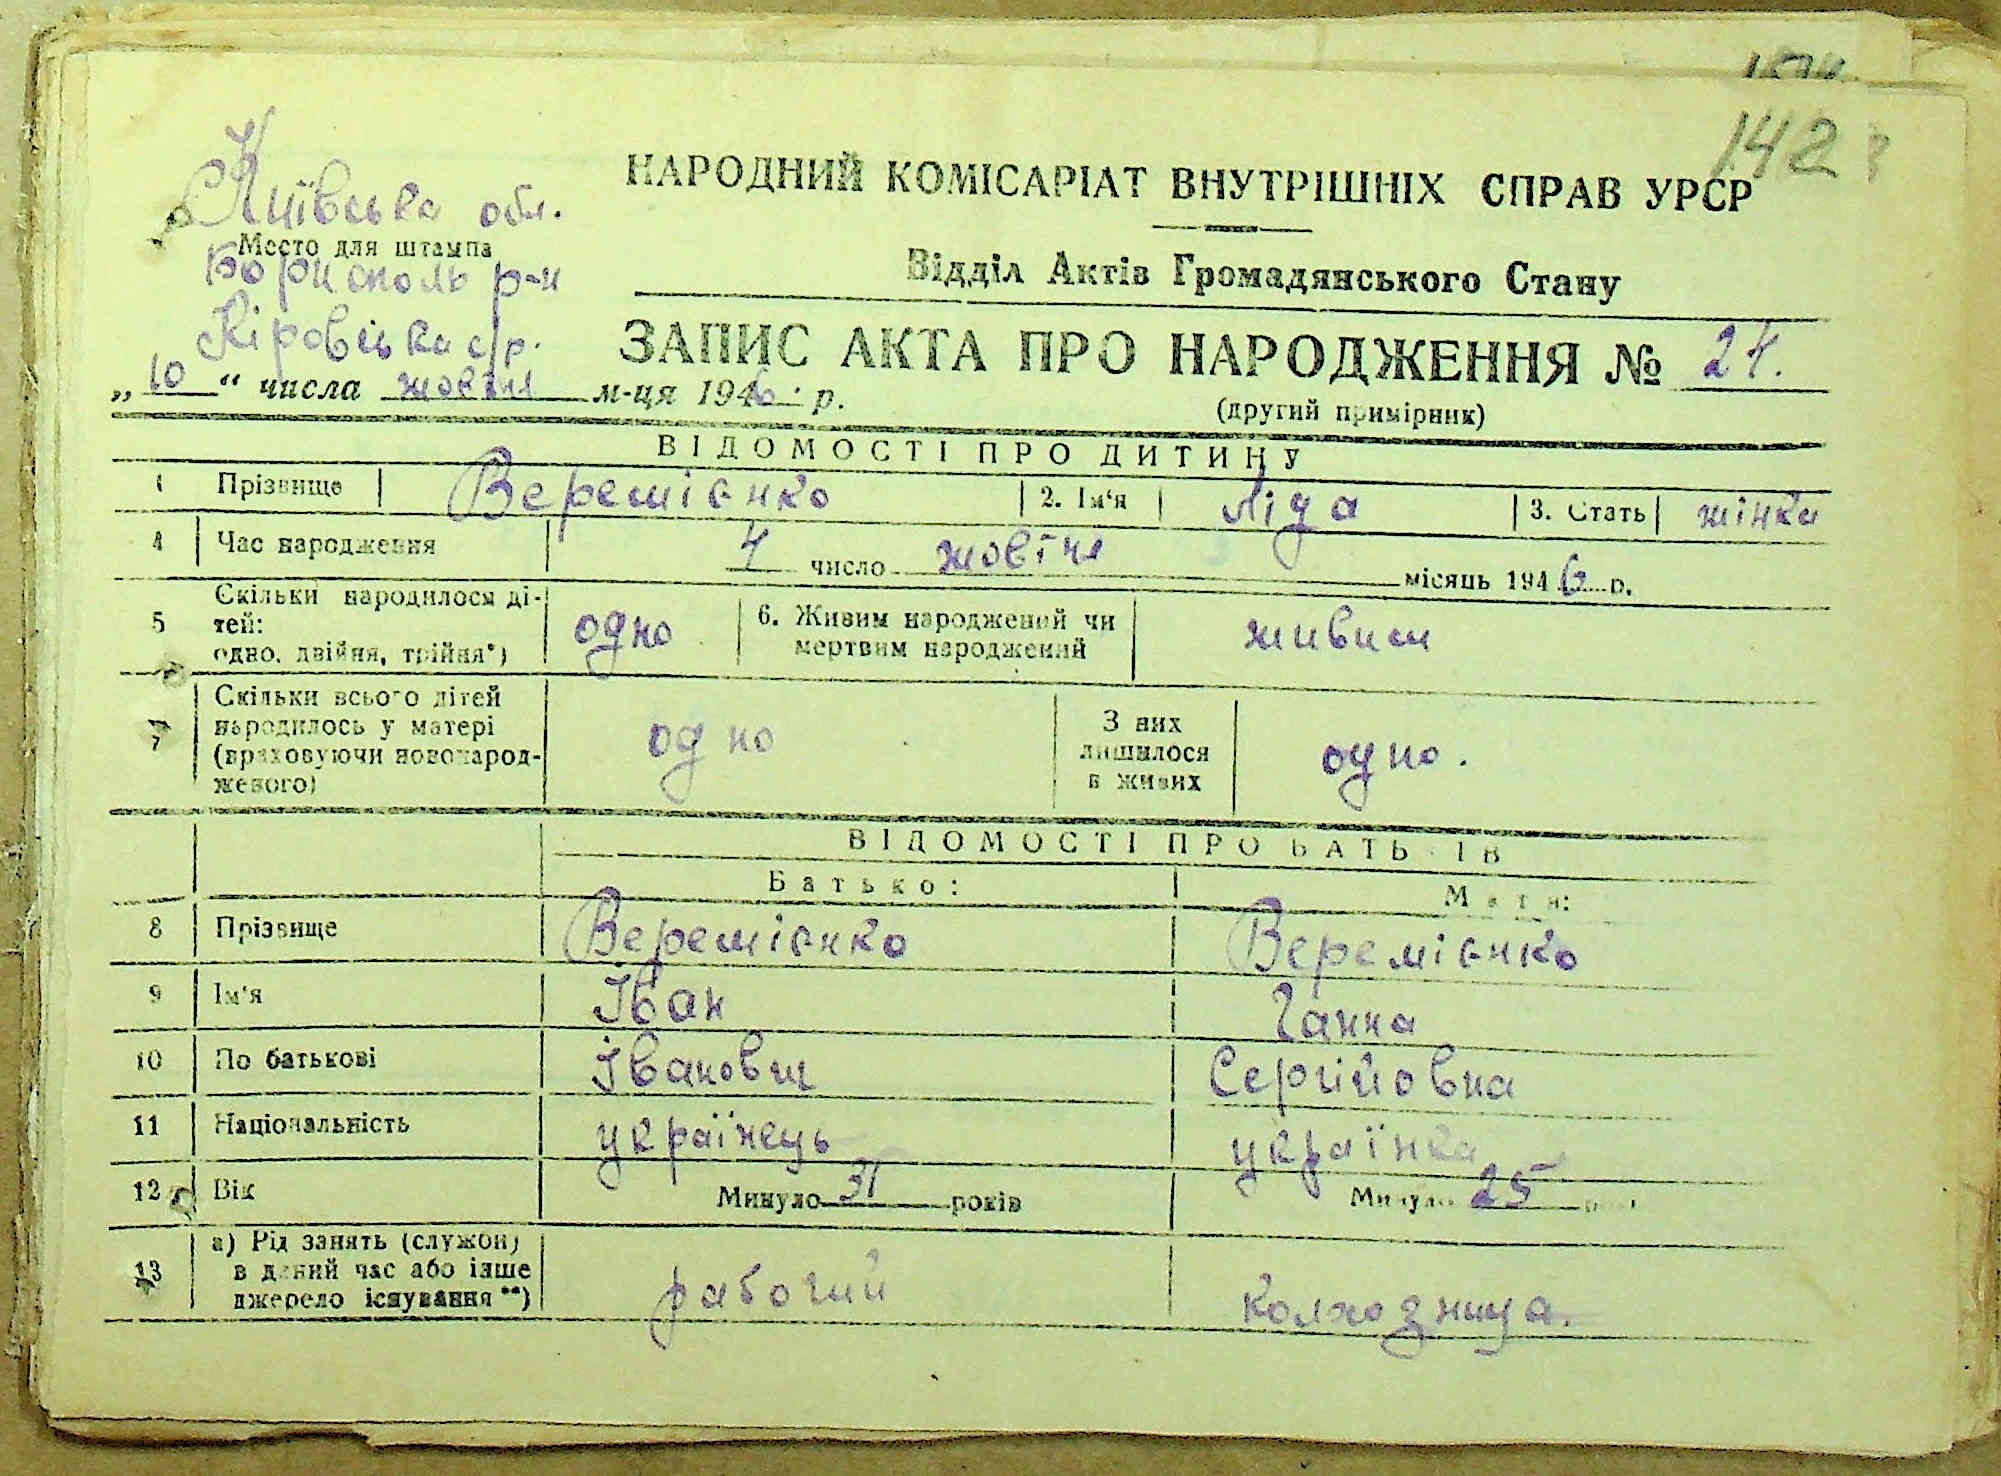 142
Київська обл.
Место для штампа
Бориспольр-н
Кіровська с/р.
НАРОДНИЙ КОМІСАРІАТ ВНУТРІШНІХ СПРАВ УРСР
Відділ Актів Громадянського Стану
ЗАПИС АКТА ПРО НАРОДЖЕННЯ № 24.
„10" числа жовтня м-ця 1946 р.
(другий примірник)
ВІДОМОСТІ ПРО ДИТИНУ
1 Прізвище Веремієнко 2. Ім'я Ліда 3. Стать жінка
4 Час народження 4 число жовтня місяць 1946 р.
5 Скільки народилося ді-
тей:
одно, двійня, трійня*) одно 6. Живим народжений чи
мертвим народжений живим
7 Скільки всього дітей
народилось у матері
(враховуючи новонарод-
женого) одно З них
лишилося
в живих одно.
ВІДОМОСТІ ПРО БАТЬКІВ
Батько: Мати:
8 Прізвище Веремієнко Веремієнко
9 Ім'я Іван Ганна
10 По батькові Іванович Сергійовна
11 Національність українець українка
12 Вік Минуло 31 років Минуло 25 років
13 а) Рід занять (служби)
в даний час або інше
джерело існування **) рабочий колхозница.